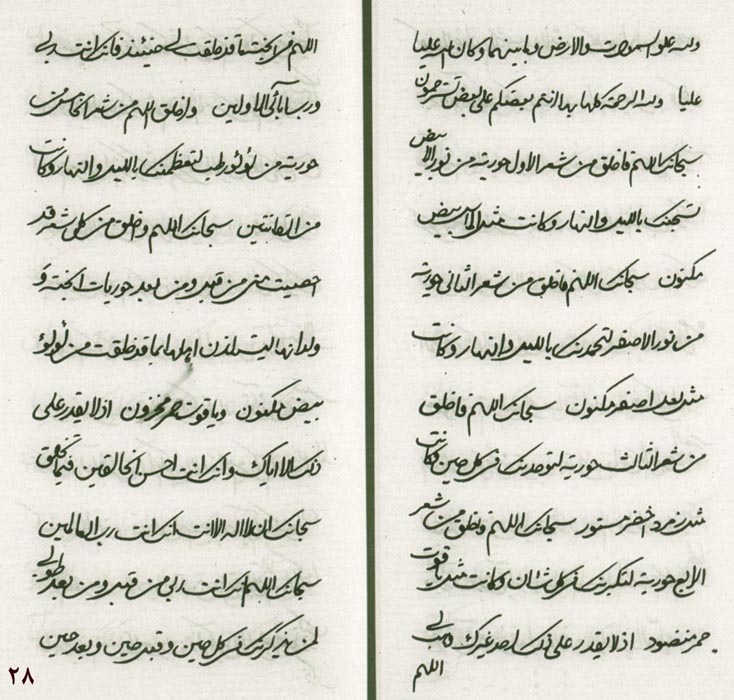 ولله علو السموات والارض وما بينهما وكان الله عليا
عليا ولله الرحمة كلها انتم بعضكم على بعض تسترحمون
سبحانك اللهم فاخلق من شعر الاول حورية من نور الابيض
تسبحنك بالليل والنهار وكانت مثل الماس بيض
مكنون سبحانك اللهم فاخلق من شعر الثاني حورية
من نور الاصفر لتحمدنك بالليل والنهار وكانت
مثل لعل اصفر مكنون سبحانك اللهم فاخلق
من شعر الثالث حورية لتوحدنك في كل حين وكانت
مثل زمرد اخضر مستور سبحانك اللهم من شعر
الرابع حورية لتكبرنك في كل شان وكانت مثل ياقوت
حمر منضود اذ لا يقدر على ذلك احد غيرك وهب لي
اللهم
اللهم من الجنة ما قد خلقت لي حينئذ فانك انت ربي
ورب آبائي الاولين واخلق اللهم من شعر الخامس من
حورية من لؤلؤ رطب لتعظمنك بالليل والنهار وكانت
من القانتين سبحانك اللهم واخلق من كل شعر قد
احصيت مني من قبل ومن بعد حوريات الجنة و
ولدانها اهلها بما قد خلقت من لؤلؤ
بيض مكنون وياقوت حمر مخزون اذ لا يقدر على
ذلك الا اياك وانك انت احسن الخالقين فيما تخلق
سبحانك ان لا اله الا انت انك انت رب العالمين
سبحانك اللهم انك انت ربي من قبل ومن بعد طوبى
لمن يذكرنك في كل حين وقبل حين وبعد حين
٢٨